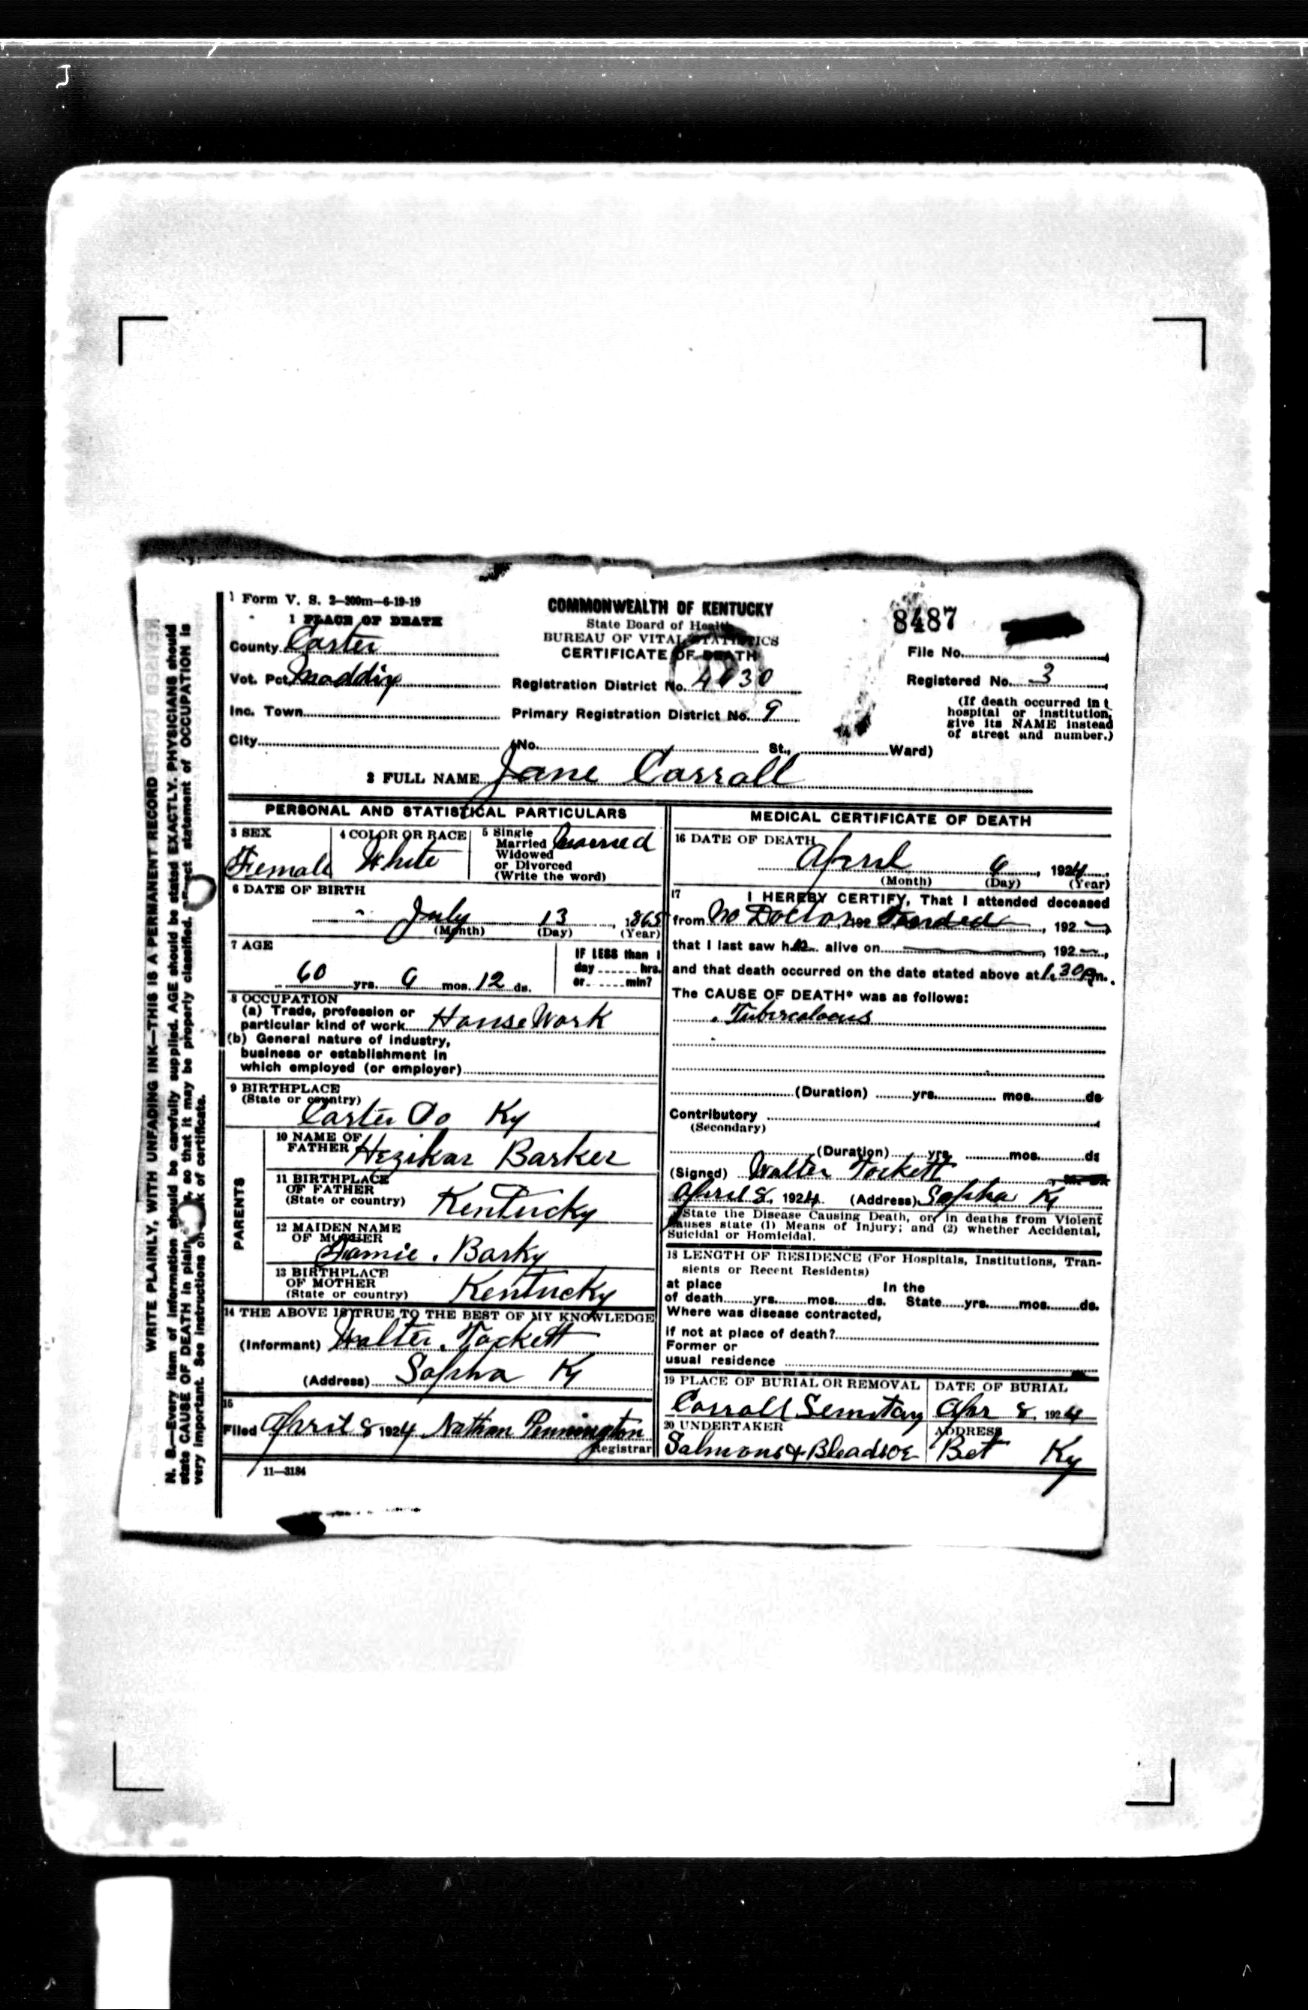 J
1 Form V. S. 2-300m-6-19-19
1 PLACE OF DEATH
County Carter
Vot. Pct. Maddix
Inc. Town
City
COMMONWEALTH OF KENTUCKY
State Board of Health
BUREAU OF VITAL STATISTICS
CERTIFICATE OF DEATH
Registration District No. 4030
Primary Registration District No. 9
(No. St., Ward)
8487
File No.
Registered No. 3
(If death occurred in
hospital or institution,
give its NAME instead
of street and number.)
2 FULL NAME Jane Carroll
PERSONAL AND STATISTICAL PARTICULARS
3 SEX
Female
4 COLOR OR RACE
White
5 Single
Married
Widowed
or Divorced
(Write the word)
Married
6 DATE OF BIRTH
July 13, 1865
(Month) (Day) (Year)
7 AGE
60 yrs. 9 mos. 12 ds.
IF LESS than 1
day hrs.
or min?
8 OCCUPATION
(a) Trade, profession or
particular kind of work House Work
(b) General nature of industry,
business or establishment in
which employed (or employer)
9 BIRTHPLACE
(State or country)
Carter Co Ky
PARENTS
10 NAME OF
FATHER Hezikar Barker
11 BIRTHPLACE
OF FATHER
(State or country) Kentucky
12 MAIDEN NAME
OF MOTHER
Barky
13 BIRTHPLACE
OF MOTHER
(State or country) Kentucky
14 THE ABOVE IS TRUE TO THE BEST OF MY KNOWLEDGE
(Informant) Walter Tackett
(Address) Sopha Ky
15
Filed April 8 1924 Nathan Pennington
Registrar
11-3184
MEDICAL CERTIFICATE OF DEATH
16 DATE OF DEATH
April 6, 1924
(Month) (Day) (Year)
17
I HEREBY CERTIFY, That I attended deceased
from No Doctor Tended, 192
that I last saw h alive on , 192
and that death occurred on the date stated above at 1.30 Pm.
The CAUSE OF DEATH* was as follows:
Tubercaloous
(Duration) yrs. mos. ds
Contributory
(Secondary)
(Duration) yrs. mos. ds
(Signed) Walter Tackett
April 8, 1924 (Address) Sopha Ky
*State the Disease Causing Death, or, in deaths from Violent
Causes state (1) Means of Injury; and (2) whether Accidental,
Suicidal or Homicidal.
18 LENGTH OF RESIDENCE (For Hospitals, Institutions, Tran-
sients or Recent Residents)
at place In the
of death yrs. mos. ds. State yrs. mos. ds.
Where was disease contracted,
if not at place of death?
Former or
usual residence
19 PLACE OF BURIAL OR REMOVAL
Carroll Semitary
DATE OF BURIAL
Apr 8, 1924
20 UNDERTAKER
Salmons & Bleadsoe
ADDRESS
Bet Ky
WRITE PLAINLY, WITH UNFADING INK—THIS IS A PERMANENT RECORD
N. B.—Every item of information should be carefully supplied. AGE should be stated EXACTLY. PHYSICIANS should
state CAUSE OF DEATH in plain so that it may be properly classified. Exact statement of OCCUPATION is
very important. See instructions on back of certificate.